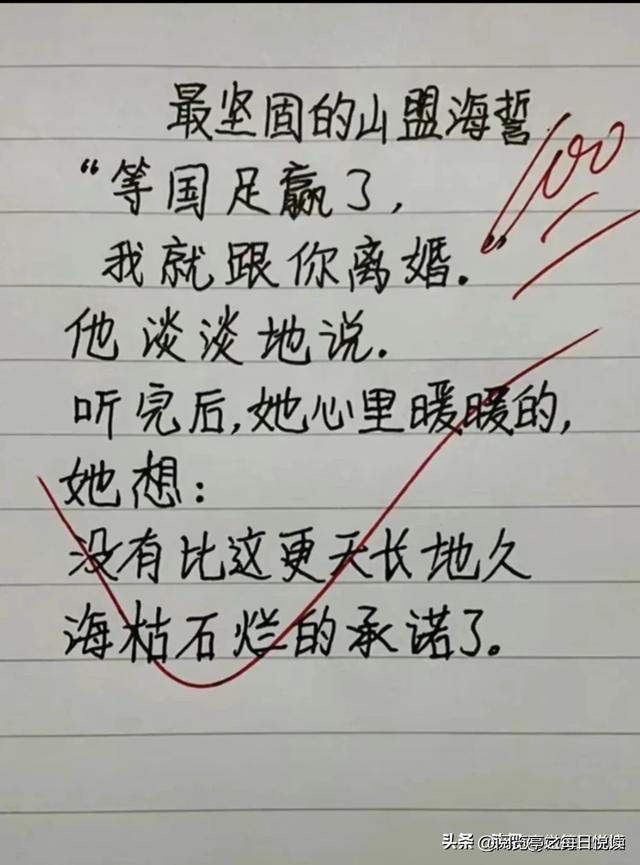 最坚固的山盟海誓
100
“等国足赢了,
我就跟你离婚.”
他淡淡地说.
听完后,她心里暖暖的,
她想:
没有比这更天长地久
海枯石烂的承诺了。
头条